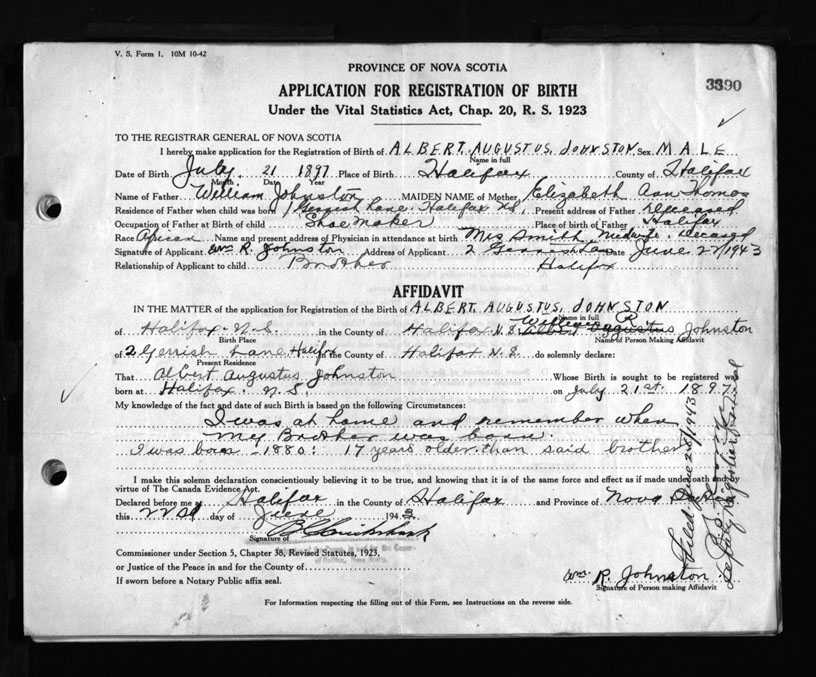 V. S. Form 1. 10M 10-42
PROVINCE OF NOVA SCOTIA
3390
APPLICATION FOR REGISTRATION OF BIRTH
Under the Vital Statistics Act, Chap. 20, R. S. 1923
TO THE REGISTRAR GENERAL OF NOVA SCOTIA
I hereby make application for the Registration of Birth of ALBERT. AUGUSTUS. JOHNSTON Sex MALE
Name in full
Date of Birth July. 21 1897 Place of Birth Halifax County of Halifax
Month Date Year
Name of Father William Johnston MAIDEN NAME of Mother Elizabeth Ann Thomas
Residence of Father when child was born 1 Gerrish Lane, Halifax N.S. Present address of Father deceased
Occupation of Father at Birth of child Shoe Maker Place of birth of Father Halifax
Race African Name and present address of Physician in attendance at birth Mrs Smith, Midwife. Deceased
Signature of Applicant Wm R. Johnston Address of Applicant 2 Gerrish Lane Date June 27/1943
Relationship of Applicant to child Brother Halifax
AFFIDAVIT
IN THE MATTER of the application for Registration of the Birth of ALBERT. AUGUSTUS. JOHNSTON
Name in full
of Halifax. N.S. in the County of Halifax N.S. William R Albert Augustus Johnston
Birth Place Name of Person Making Affidavit
of 2 Gerrish Lane Halifax in the County of Halifax N.S. do solemnly declare:
Present Residence
That Albert Augustus Johnston Whose Birth is sought to be registered was
born at Halifax. N.S. on July 21st. 1897
My knowledge of the fact and date of such Birth is based on the following Circumstances:
I was at home and remember when
my Brother was born.
I was born - 1880: 17 years older than said brother
I make this solemn declaration conscientiously believing it to be true, and knowing that it is of the same force and effect as if made under oath and by
virtue of The Canada Evidence Act.
Declared before me at Halifax in the County of Halifax and Province of Nova Scotia
this day of June 1943
Signature of
Commissioner under Section 5, Chapter 38, Revised Statutes, 1923,
or Justice of the Peace in and for the County of
If sworn before a Notary Public affix seal.
Wm. R. Johnston
Signature of Person making Affidavit
For Information respecting the filling out of this Form, see Instructions on the reverse side.
Filed June 28/1943
Deputy Registrar General